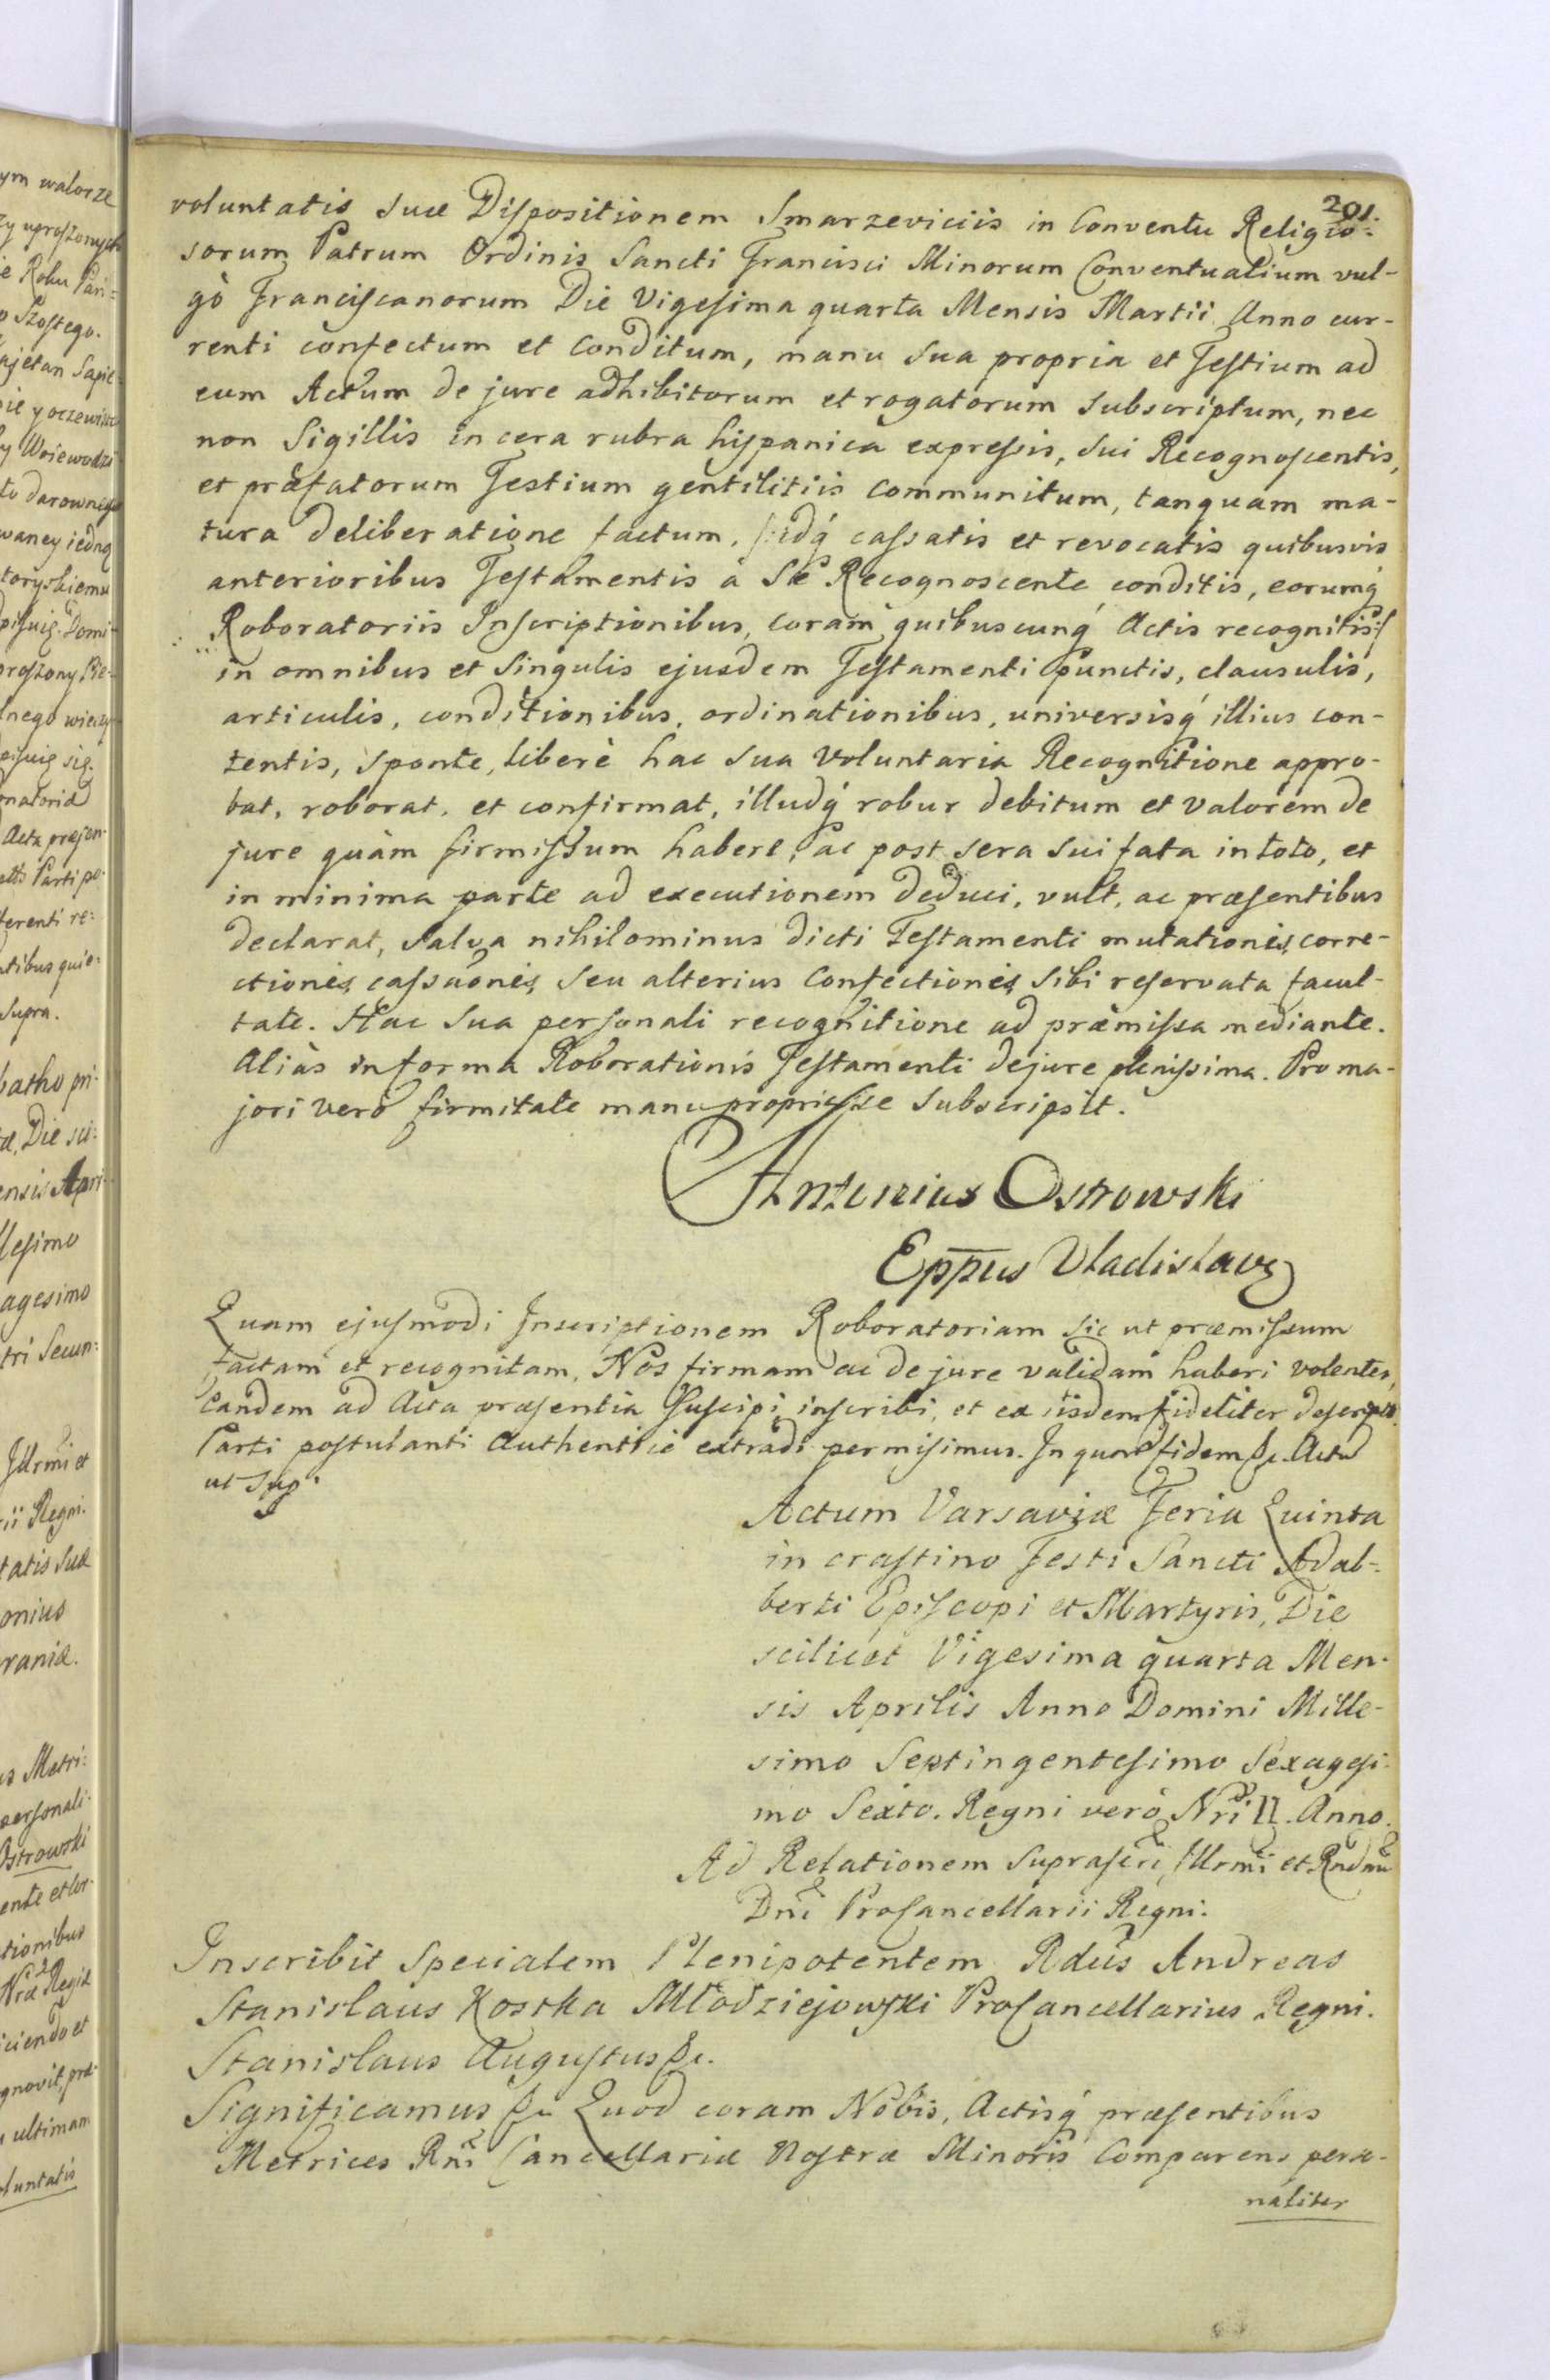 201.
voluntatis suæ Dispositionem Smarzeviciis in Conventu Religio-
sorum Patrum Ordinis Sancti Francisci Minorum Conventualium vul-
gò Franciscanorum Die Vigesima quarta Mensis Martii Anno cur-
renti confectum et conditum, manu sua propria et Testium ad
eum Actum de jure adhibitorum et rogatorum subscriptum, nec
non Sigillis in cera rubra hispanica expressis, sui Recognoscentis,
et præfatorum Testium gentilitiis communitum, tanquam ma-
tura deliberatione factum, /:idq́ cassatis et revocatis quibusvis
anterioribus Testamentis à Se Recognoscente conditis, eorumq́
Roboratoriis Inscriptionibus, coram quibuscunq́ Actis recognitis:/
in omnibus et singulis ejusdem Testamenti punctis, clausulis,
articulis, conditionibus, ordinationibus, universisq́ illius con-
tentis, sponte, liberè hac sua voluntaria Recognitione appro-
bat, roborat, et confirmat, illudq́ robur debitum et valorem de
jure quàm firmissum habere, ac post sera sui fata in toto, et
in minima parte ad executionem deduci, vult, ac præsentibus
declarat, salva nihilominus dicti Testamenti mutationis, corre-
ctionis, cassãonis, seu alterius confectionis sibi reservata facul-
tate. Hac sua personali recognitione ad præmissa mediante.
Aliàs in forma Roborationis Testamenti de jure plenissima. Pro ma-
jori verò firmitate manu propria se subscripsit.
Antonius Ostrowski
Eppus Vladislavs
Quam ejusmodi Inscriptionem Roboratoriam sic ut præmissum
factam et recognitam, Nos firmam ac de jure validam haberi volentes,
eandem ad Acta præsentia suscipi, inscribi, et ex iisdem fideliter descriptã
Parti postulanti authenticè extradi permisimus. In quorũ fidem &c. Actũ
ut sup.
Actum Varsaviæ Feria Quinta
in crastino Festi Sancti Adal-
berti Episcopi et Martyris, Die
scilicet Vigesima quarta Men-
sis Aprilis Anno Domini Mille-
simo Septingentesimo Sexagesi-
mo Sexto. Regni verò Nri II. Anno.
Ad Relationem suprascri Illrmi et Rndmi
Dni Procancellarii Regni.
Inscribit specialem Plenipotentem Rdũs Andreas
Stanislaus Kostka Młodziejowski Procancellarius Regni.
Stanislaus Augustus &c.
Significamus &c. Quod coram Nobis, Actisq́ præsentibus
Metrices Rni Cancellariæ Nostræ Minoris comparens perso-
naliter